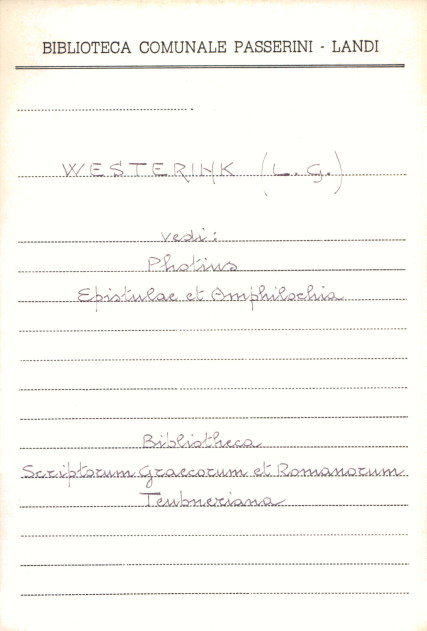 BIBLIOTECA COMUNALE PASSERINI - LANDI
WESTERINK (L. G.)
vedi:
Photius
Epistulae et Amphilochia
Bibliotheca
Scriptorum Graecorum et Romanorum
Teubneriana